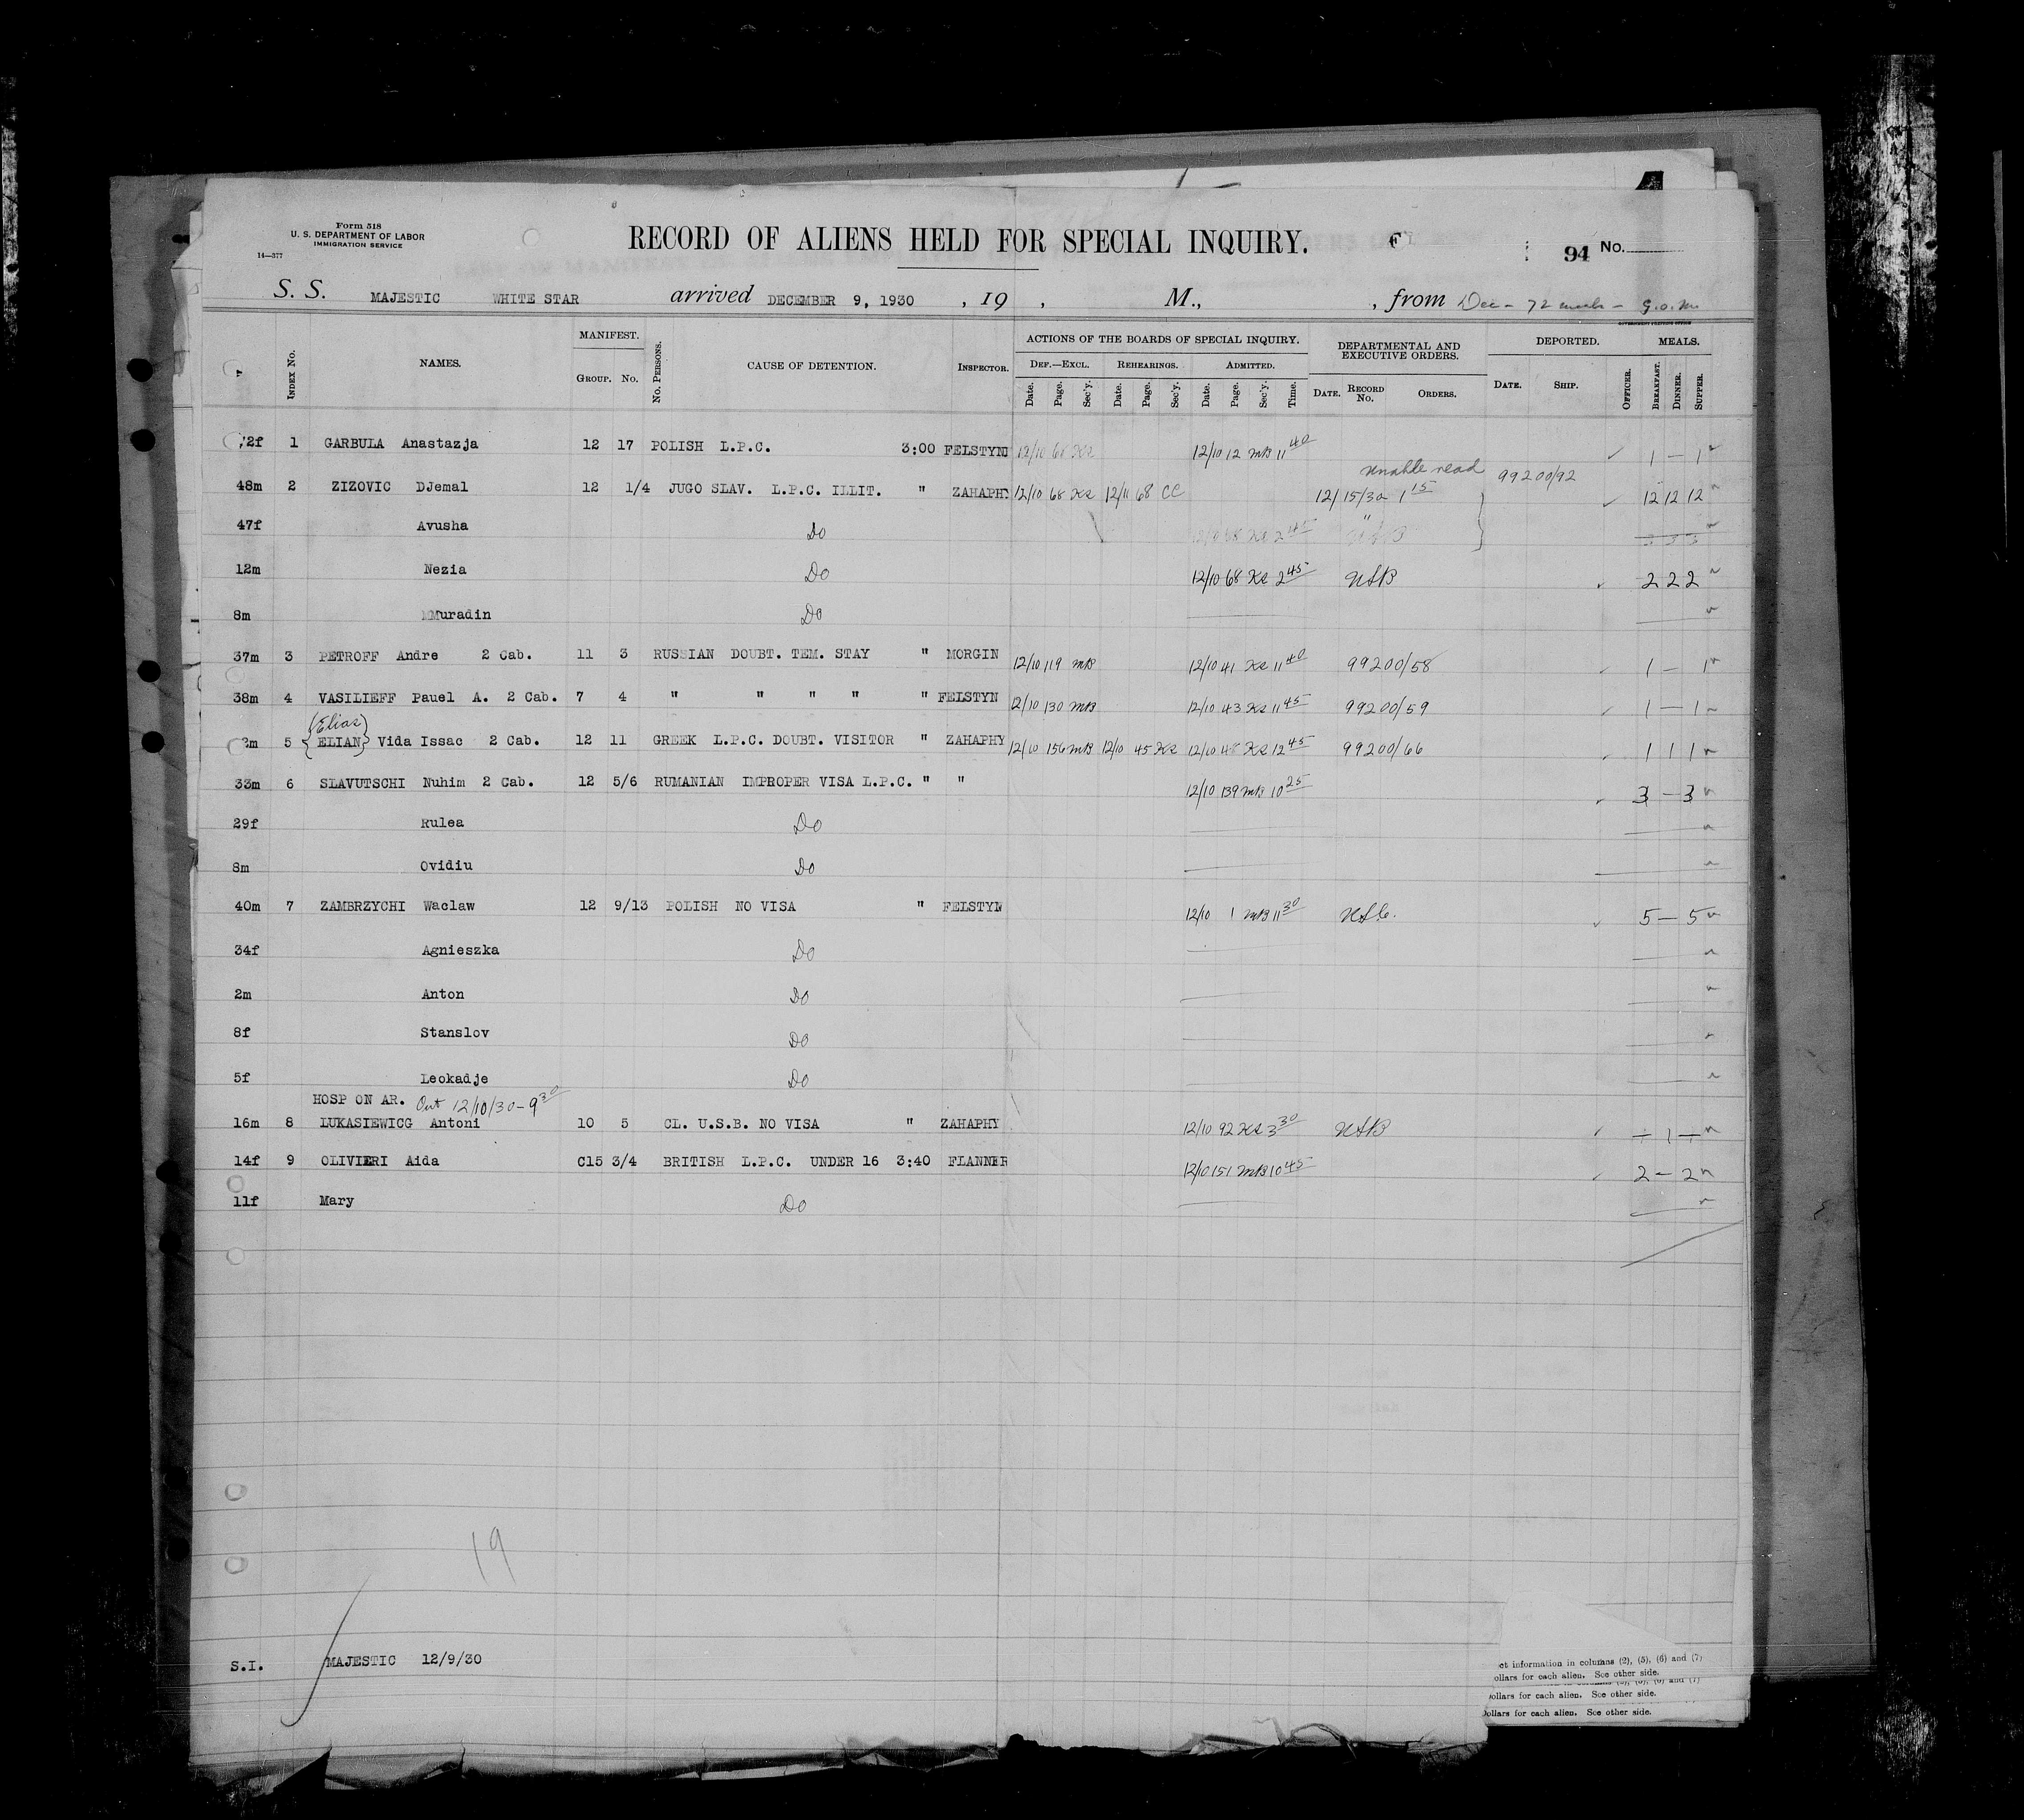 Form 518
U. S. DEPARTMENT OF LABOR
IMMIGRATION SERVICE
14—377
RECORD OF ALIENS HELD FOR SPECIAL INQUIRY.
94 No.
S. S. MAJESTIC WHITE STAR arrived DECEMBER 9, 1930 , 19 , M., , from Dec - 72 meals - G.O.M.
INDEX No. NAMES. MANIFEST. GROUP. No. No. PERSONS. CAUSE OF DETENTION. INSPECTOR. ACTIONS OF THE BOARDS OF SPECIAL INQUIRY. DEF.—EXCL. REHEARINGS. ADMITTED. DEPARTMENTAL AND EXECUTIVE ORDERS. DEPORTED. MEALS.
Date. Page. Sec'y. Date. Page. Sec'y. Date. Page. Sec'y. Time. DATE. RECORD No. ORDERS. DATE. SHIP. OFFICER. BREAKFAST. DINNER. SUPPER.
72f 1 GARBULA Anastazja 12 17 POLISH L.P.C. 3:00 FELSTYN 12/10 68 Ks 12/10 12 MB 11 40 1 — 1
unable read 99200/92
48m 2 ZIZOVIC DJemal 12 1/4 JUGO SLAV. L.P.C. ILLIT. " ZAHAPHY 12/10 68 Ks 12/11 68 CC 12/15/30 1 15 12 12 12
47f Avusha Do 12/10 68 Ks 2 45 " 3 3 3
12m Nezia Do 12/10 68 Ks 2 45 NSB 2 2 2
8m Muradin Do
37m 3 PETROFF Andre 2 Cab. 11 3 RUSSIAN DOUBT. TEM. STAY " MORGIN 12/10 119 MB 12/10 41 Ks 11 40 99200/58 1 — 1
38m 4 VASILIEFF Pauel A. 2 Cab. 7 4 " " " " " FELSTYN 12/10 130 MB 12/10 43 Ks 11 45 99200/59 1 — 1
(Elias)
2m 5 {ELIAN} Vida Issac 2 Cab. 12 11 GREEK L.P.C. DOUBT. VISITOR " ZAHAPHY 12/10 156 MB 12/10 45 Ks 12/10 48 Ks 12 45 99200/66 1 1 1
33m 6 SLAVUTSCHI Nuhim 2 Cab. 12 5/6 RUMANIAN IMPROPER VISA L.P.C. " " 12/10 139 MB 10 25 3 — 3
29f Rulea Do
8m Ovidiu Do
40m 7 ZAMBRZYCHI Waclaw 12 9/13 POLISH NO VISA " FELSTYN 12/10 1 MB 11 30 5 — 5
34f Agnieszka Do
2m Anton Do
8f Stanslov Do
5f Leokadje Do
HOSP ON AR. Out 12/10/30 - 9 30
16m 8 LUKASIEWICG Antoni 10 5 CL. U.S.B. NO VISA " ZAHAPHY 12/10 92 Ks 3 30 NSB — 1 —
14f 9 OLIVIERI Aida C15 3/4 BRITISH L.P.C. UNDER 16 3:40 FLANNER 12/10 151 MB 10 45 2 — 2
11f Mary Do
19
S.I. MAJESTIC 12/9/30
ct information in columns (2), (5), (6) and (7)
ollars for each alien. See other side.
ollars for each alien. See other side.
Dollars for each alien. See other side.